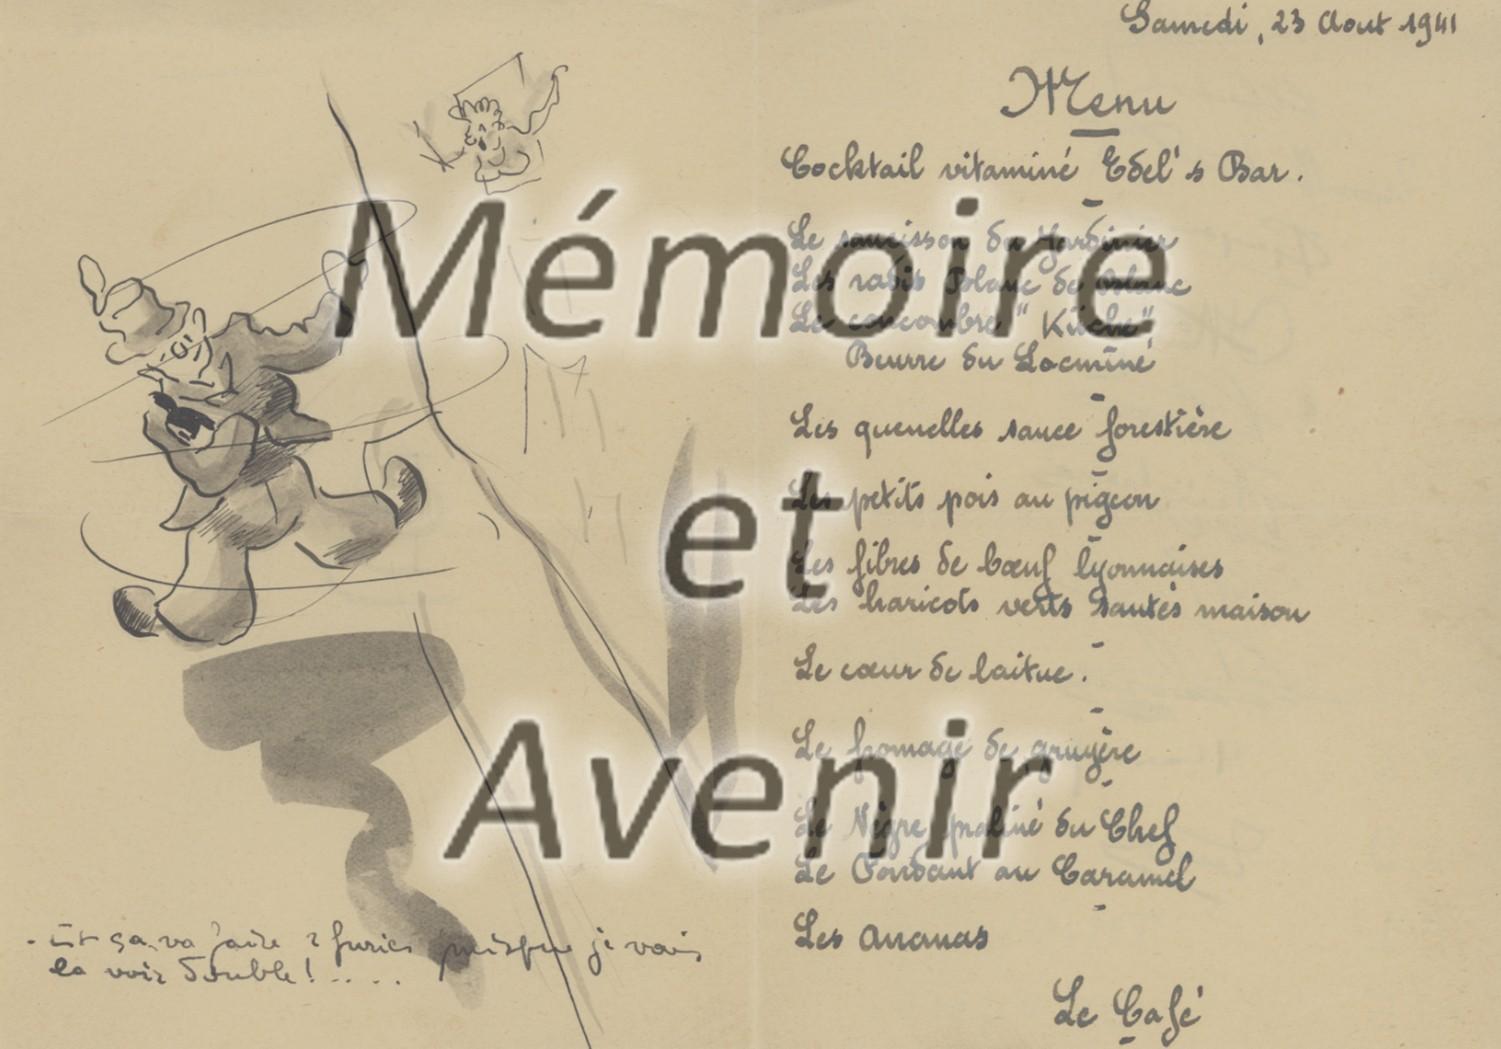 Samedi, 23 Aout 1941
Menu
Cocktail vitaminé Edel's Bar.
Le saucisson du Jardinier
Les radis blanc de blanc
Le concombre "Kitche"
Beurre du Locminé
Les quenelles sauce forestière
Les petits pois au pigeon
Les fibres de bœuf lyonnaises
Les haricots verts sautés maison
Le cœur de laitue.
Le fromage de gruyère
Le Nègre praliné du Chef
Le Fondant au Caramel
Les Ananas
Le Café
- Et ça va faire 2 furies puisque je vais
la voir double!.....
Mémoire
et
Avenir